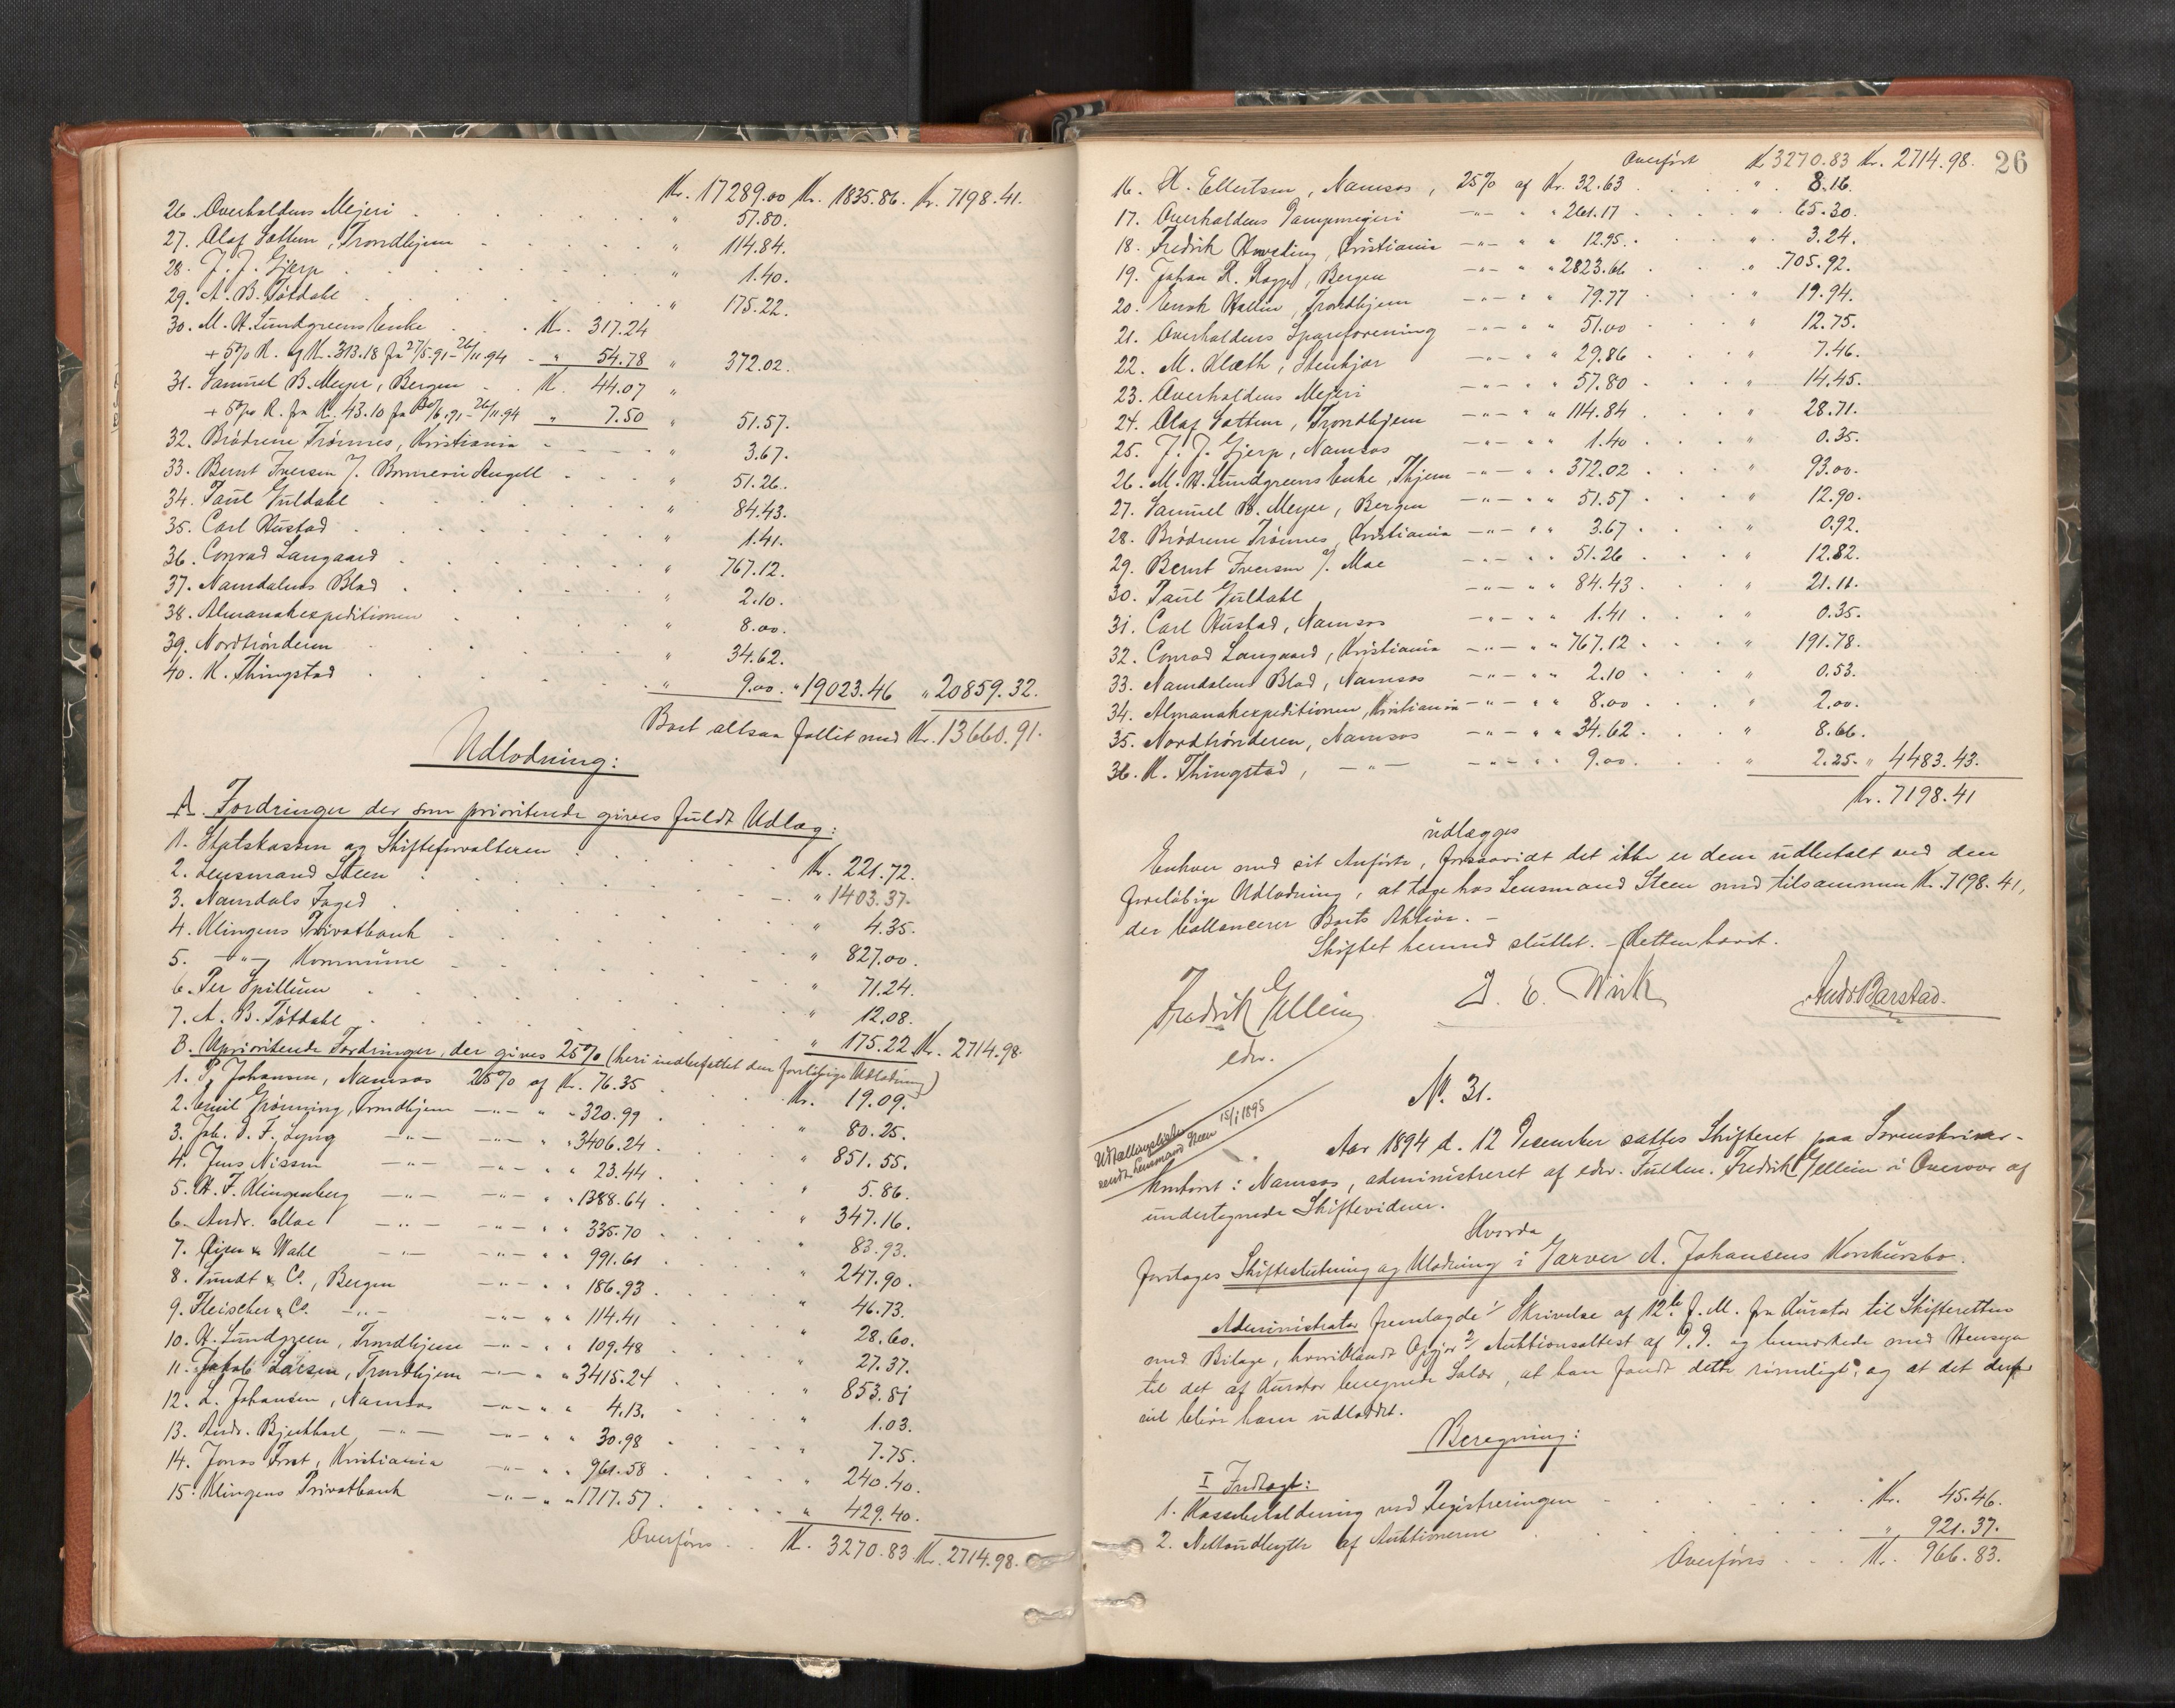 Kr. 17289.00 Kr. 1835.86. Kr. 7198.41.
26. Overhaldens Mejeri . . . " 57.80.
27. Olaf Sattem, Trondhjem . . . " 114.84.
28. J. J. Gjerp . . . " 1.40.
29. A. B. Tøtdahl . . . " 175.22.
30. M. H. Lundgreens Enke . . . Kr. 317.24
+ 5% R. af Kr. 313.18 fra 27/5.91 - 26/11.94 - " 54.78 " 372.02.
31. Samuel B. Meyer, Bergen . . Kr. 44.07 "
+ 5% R. fra Kr. 43.10 fra 30/6.91 - 26/11.94 " 7.50 " 51.57.
32. Brødrene Trønnes, Kristiania - " 3.67.
33. Bernt Iversen f. Angell . . . " 51.26.
34. Paul Guldahl . . . " 84.43.
35. Carl Hustad . . . " 1.41.
36. Conrad Langaard . . . " 767.12.
37. Namdalens Blad . . . " 2.10.
38. Almanakexpeditionen . . . " 8.00.
39. Nordtrønderen . . . " 34.62.
40. K. Thingstad . . . " 9.00. " 19023.46 " 20859.32.
Boet altsaa fallit med Kr. 13660.91.
Udlodning:
A. Fordringer der som prioriterede gives fuldt Udlæg:
1. Statskassen og Skifteforvalteren . . . Kr. 221.72.
2. Lensmand Steen . . . " 1403.37.
3. Namdals Foged . . . " 4.35.
4. Klingens Privatbank . . . " 827.00.
5. -"- Kommune . . . " 71.24.
6. Per Spillum . . . " 12.08.
7. A. B. Tøtdahl . . . " 175.22 Kr. 2714.98.
B. Uprioriterede Fordringer, der gives 25% (heri indbefattet den foreløbige Udlodning)
1. P. Johansen, Namsos 25% af Kr. 76.35 . . . Kr. 19.09.
2. Emil Grønning, Trondhjem -"- " " 320.99 . . . " 80.25.
3. Joh. D. F. Lyng -"- -"- " " 3406.24 . . . " 851.55.
4. Jens Nissen -"- -"- " " 23.44 . . . " 5.86.
5. H. F. Klingenberg -"- -"- " " 1388.64 . . . " 347.16.
6. Andr. Moe -"- -"- " " 335.70 . . . " 83.93.
7. Øien & Wahl -"- -"- " " 991.61 . . . " 247.90.
8. Sundt & Co., Bergen -"- " " 186.93 . . . " 46.73.
9. Fleischer & Co. -"- -"- " " 114.41 . . . " 28.60.
10. H. Lundgreen, Trondhjem -"- " " 109.48 . . . " 27.37.
11. Jakob Larsen, Trondhjem -"- " " 3415.24 . . . " 853.81
12. L. Johansen, Namsos -"- " " 4.13. . . . " 1.03.
13. Andr. -"- -"- " " 30.98 . . . " 7.75.
14. Jonas Frost, Kristiania -"- " " 961.58 . . . " 240.40.
15. Klingens Privatbank -"- " " 1717.57. . . . " 429.40.
Overføres . . Kr. 3270.83 Kr. 2714.98.
26
Overført Kr. 3270.83 Kr. 2714.98.
16. H. Ellertsen, Namsos, 25% af Kr. 32.63 . . . " 8.16.
17. Overhaldens Dampmejeri -"- " " 261.17 . . . " 65.30.
18. Fredrik, Kristiania -"- " " 12.95. . . . " 3.24.
19. Johan R. Rogge, Bergen -"- " " 2823.66 . . . " 705.92.
20. Enok Hallin, Trondhjem -"- " " 79.77 . . . " 19.94.
21. Overhaldens Spareforening -"- " " 51.00 . . . " 12.75.
22. M. Klæth, Stenkjær -"- " " 29.86 . . . " 7.46.
23. Overhaldens Mejeri -"- " " 57.80 . . . " 14.45.
24. Olaf Sattem, Trondhjem -"- " " 114.84 . . . " 28.71.
25. J. J. Gjerp, Namsos -"- " " 1.40 . . . " 0.35.
26. M. H. Lundgreens Enke, Thjem -"- " " 372.02 . . . " 93.00.
27. Samuel B. Meyer, Bergen -"- " " 51.57 . . . " 12.90.
28. Brødrene Trønnes, Kristiania -"- " " 3.67 . . . " 0.92.
29. Bernt Iversen f. Moe -"- " " 51.26 . . . " 12.82.
30. Paul Guldahl -"- " " 84.43 . . . " 21.11.
31. Carl Hustad, Namsos -"- " " 1.41 . . . " 0.35.
32. Conrad Langaard, Kristiania -"- " " 767.12 . . . " 191.78.
33. Namdalens Blad, Namsos -"- " " 2.10 . . . " 0.53.
34. Almanakexpeditionen, Kristiania -"- " " 8.00 . . . " 2.00.
35. Nordtrønderen, Namsos -"- " " 34.62 . . . " 8.66.
36. K. Thingstad, -"- -"- " " 9.00. . . . " 2.25. " 4483.43.
Kr. 7198.41
udlægges
Enhver med sit Anførte, forsaavidt det ikke er dem udbetalt ved den
foreløbige Udlodning, at tage hos Lensmand Steen med tilsammen Kr. 7198.41,
der ballancerer Boets Aktiva. -
Skiftet hermed sluttet. - Retten hævet.
Fredrik Gellein J. E. Wiik Andr Barstad.
edsv.
No. 31.
Udstillingsliste
sendt Lensmand Steen 15/1 1895
Aar 1894 d. 12 December sattes Skifteret paa Sorenskriver-
kontoret i Namsos, administreret af edsv. Fuldm. Fredrik Gellein i Overvær af
undertegnede Skiftevidner.
Hvorda
foretoges Skifteslutning og Udlodning i Garver A. Johansens Konkursbo.
Administrator fremlagde 1/ Skrivelse af 12te f. M. fra Kurator til Skifteretten
med Bilage, hvoriblandt Opgjør 2/ Auktionsattest af D. D. og bemærkede med Hensyn
til det af Kurator beregnede Salær, at han fandt dette rimeligt, og at det derfor
vil blive ham udloddet.
Beregning:
I Indtægt:
1. Kassebeholdning ved Registreringen . . . Kr. 45.46.
2. Nettoudbytte af Auktionerne . . . " 921.37.
Overføres . . . Kr. 966.83.